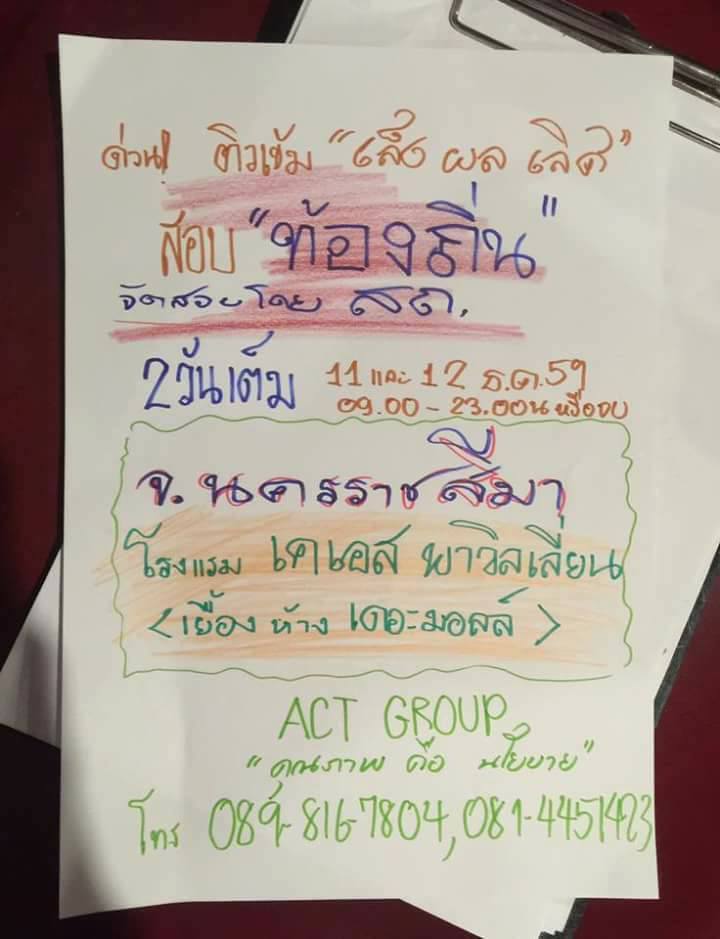 ด่วน! ติวเข้ม "เส็ง ผล เลิศ"
สอบ "ท้องถิ่น"
จัดสอบโดย สถ.
2วันเต็ม 11 และ 12 ธ.ค.59
09.00 - 23.00น หรือจบ
จ.นครราชสีมา
โรงแรม เคเอส พาวิลเลี่ยน
<เยื้อง ห้าง เดอะมอลล์>
ACT GROUP
"คุณภาพ คือ นโยบาย"
โทร 089-816-7804, 081-4451423